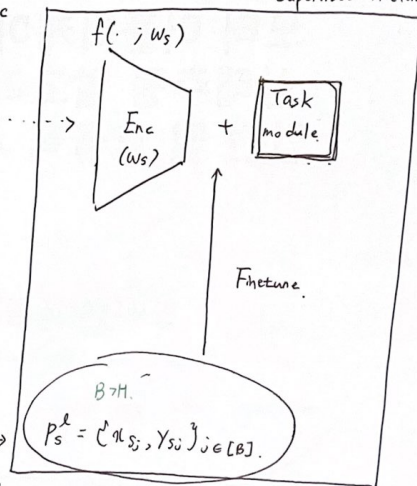 f(· ; ws)
Enc
(ws)
+
Task
module
Finetune.
B>M.
Psˡ = {xsj, ysj}j∈[B].